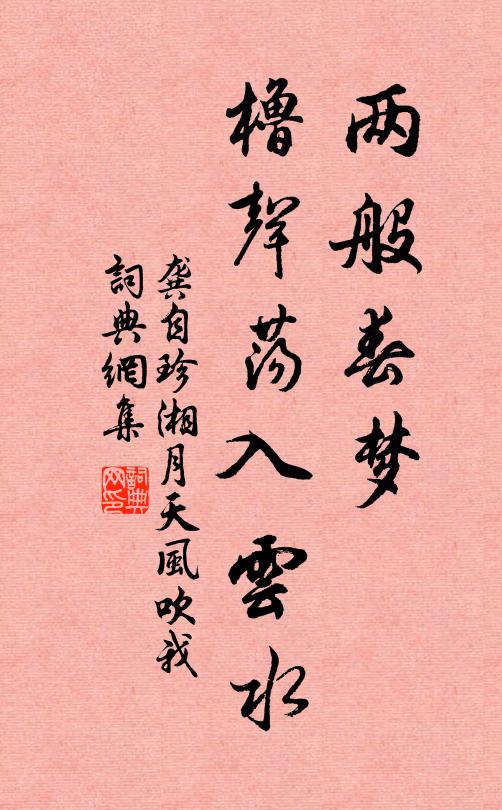 两般春梦
櫓聲荡入雲水
龚自珍湘月天風吹我
詞典網集
詞典网印